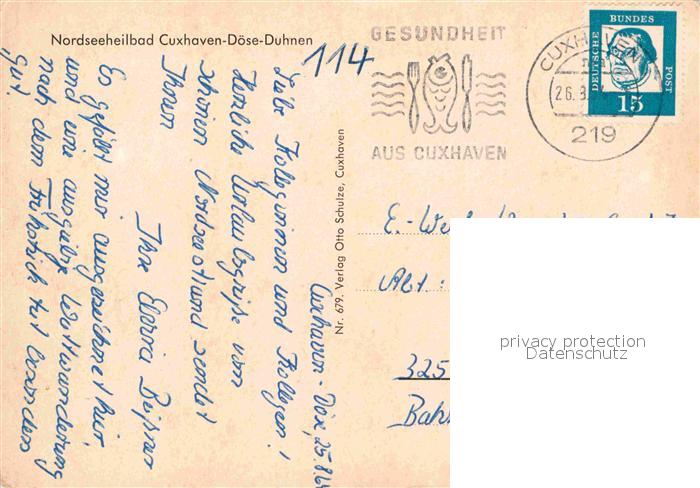 Nordseeheilbad Cuxhaven-Döse-Duhnen
114
GESUNDHEIT
AUS CUXHAVEN
CUXHAVEN
26.8.
219
DEUTSCHE
BUNDES
POST
15
Cuxhaven-Döse, 25.8.64
Liebe Kolleginnen und Kollegen!
Herzliche Urlaubsgrüße vom
schönen Nordseestrand sendet
Ihnen
Ihre
Es gefällt mir ausgezeichnet hier,
und eine ausgiebige Wattwanderung
nach dem Frühstück tut besonders
gut.
Nr. 679. Verlag Otto Schulze, Cuxhaven
E.-
Abt.:
325
Bahn
privacy protection
Datenschutz